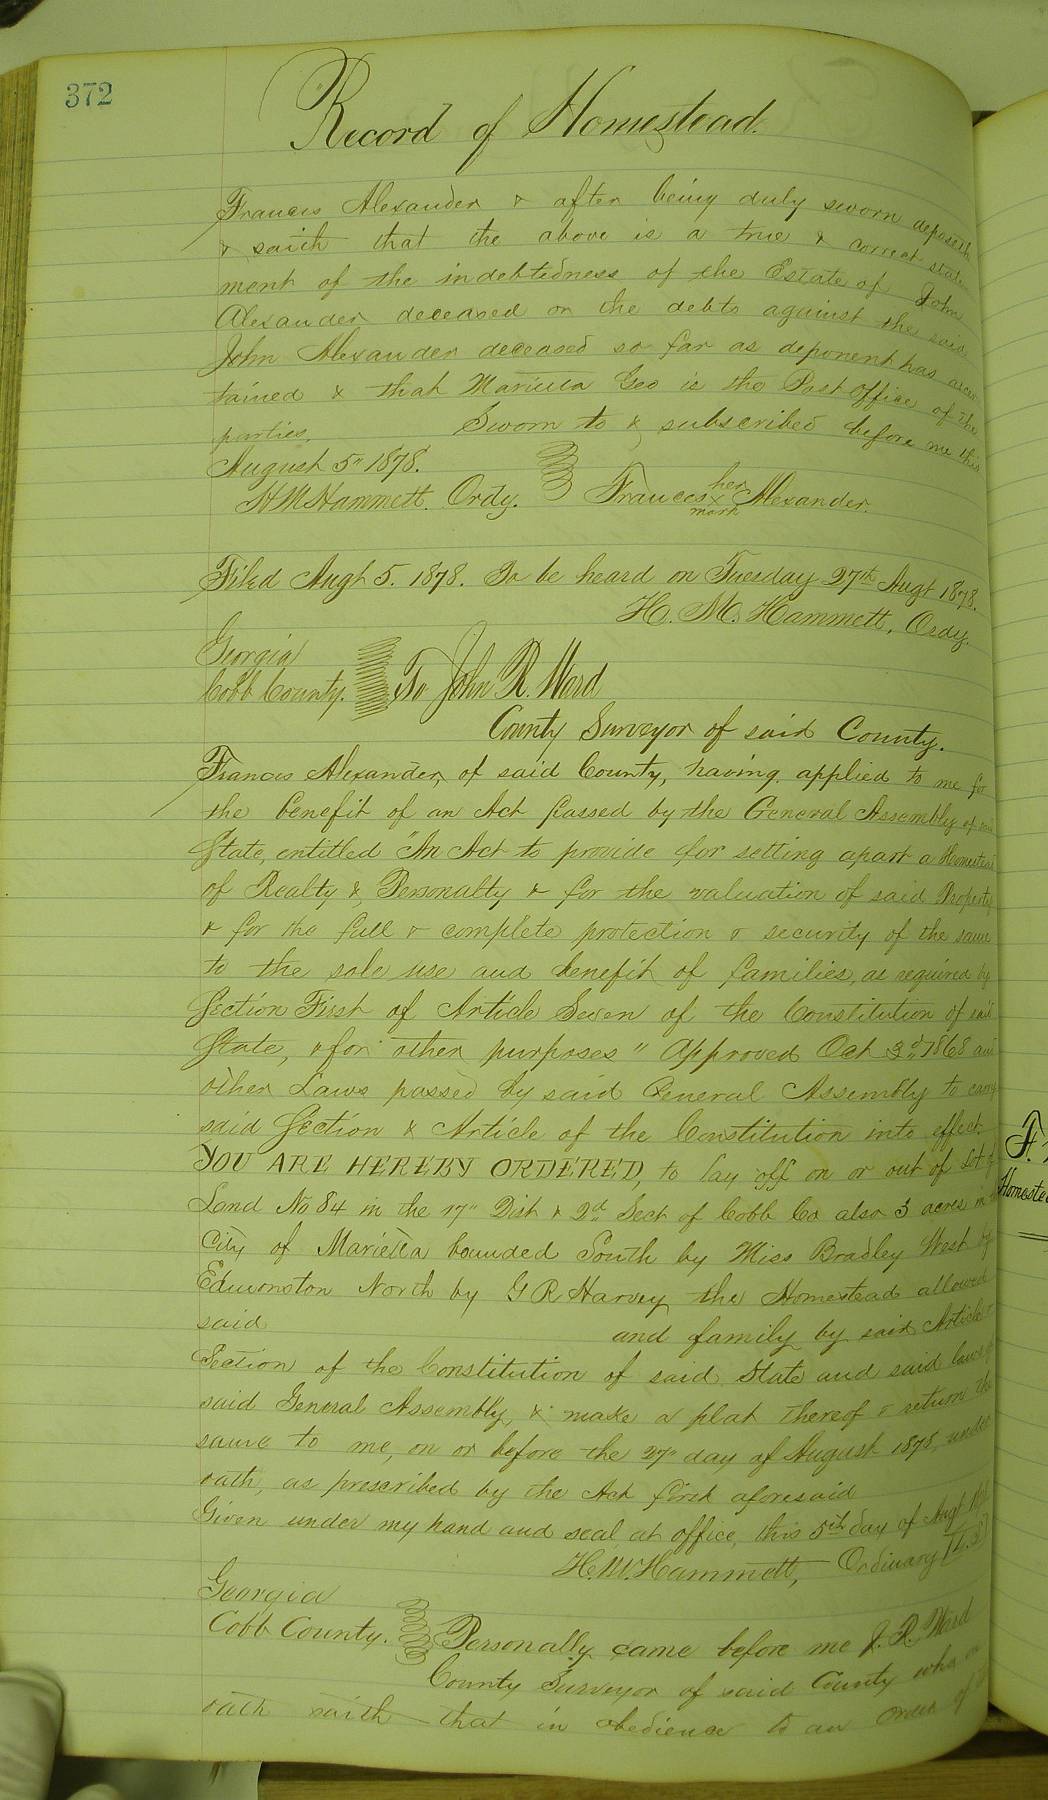 372
Record of Homestead.
Frances Alexander & after being duly sworn deposeth
& saith that the above is a true & correct state
ment of the indebtedness of the Estate of John
Alexander deceased or the debts against the said
John Alexander deceased so far as deponent has ascer
tained & that Marietta Geo is the Post office of the
parties. Sworn to & subscribed before me this
August 5" 1878.
H M Hammett. Ordy. Frances her x mark Alexander.
Filed Augt 5. 1878. To be heard on Tuesday 27th Augt 1878.
H. M. Hammett, Ordy.
Georgia
Cobb County. To John R. Ward
County Surveyor of said County.
Frances Alexander, of said County, having applied to me for
the benefit of an Act passed by the General Assembly of said
State, entitled "An Act to provide for setting apart a Homestead
of Realty & Personalty & for the valuation of said Property
& for the full & complete protection & security of the same
to the sole use and benefit of families, as required by
Section First of Article Seven of the Constitution of said
State, & for other purposes" approved Oct 3d 1868 and
other Laws passed by said General Assembly to carry
said Section & Article of the Constitution into effect.
YOU ARE HEREBY ORDERED, to lay off on or out of Lot of
Land No 84 in the 17" Dist & 2d Sect of Cobb Co also 3 acres in the
City of Marietta bounded South by Miss Bradley West by
Edmonston North by G R Harvey the Homestead allowed
said and family by said Article &
Section of the Constitution of said State and said laws of
said General Assembly, & make a plat thereof & return the
same to me, on or before the 27" day of August 1878, under
oath, as prescribed by the Act first aforesaid
Given under my hand and seal at office, this 5th day of Augt 1878
H. M. Hammett, Ordinary [L.S.]
Georgia
Cobb County. Personally came before me J. R. Ward
County Surveyor of said County who on
oath saith that in obedience to an order of
F.
Homeste